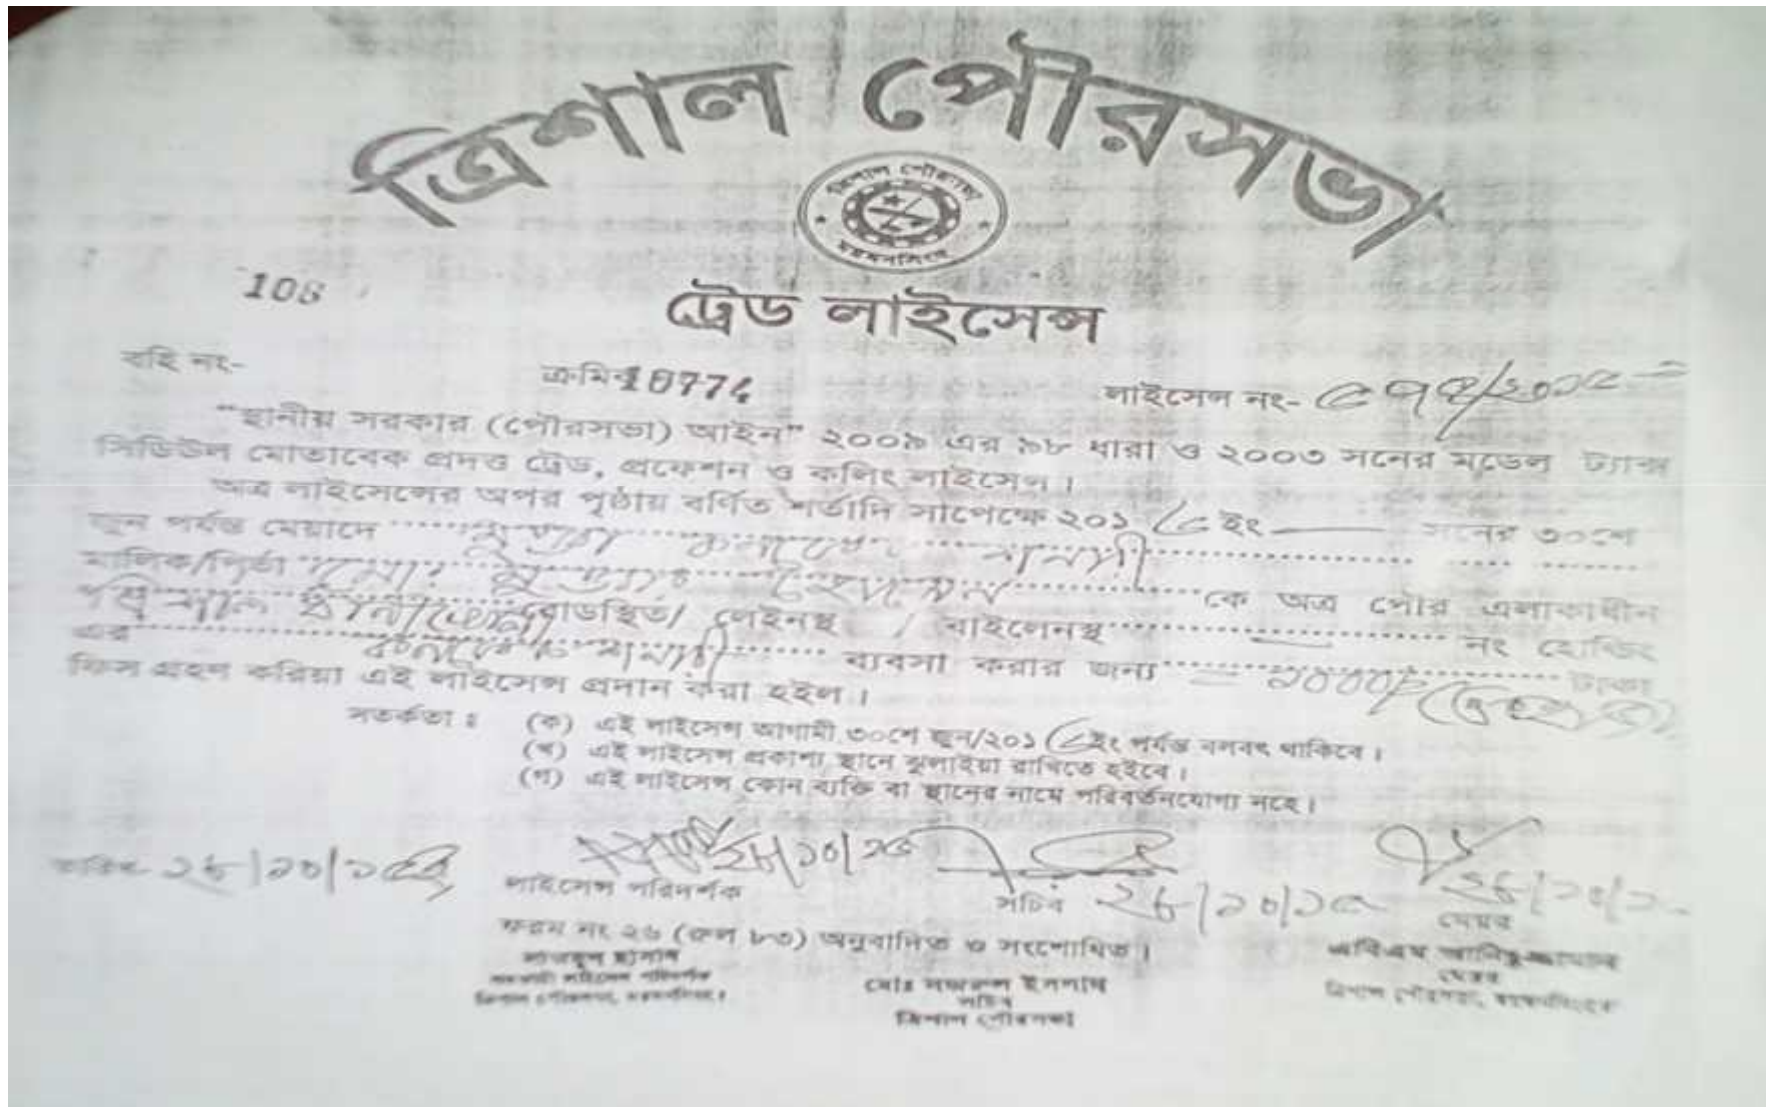 ত্রিশাল পৌরসভা
ত্রিশাল পৌরসভা
ময়মনসিংহ
108
ট্রেড লাইসেন্স
বহি নং-
ক্রমিক 10774
লাইসেন্স নং-
"স্থানীয় সরকার (পৌরসভা) আইন" ২০০৯ এর ৯৮ ধারা ও ২০০৩ সনের মডেল ট্যাক্স
সিডিউল মোতাবেক প্রদত্ত ট্রেড, প্রফেশন ও কলিং লাইসেন্স।
অত্র লাইসেন্সের অপর পৃষ্ঠায় বর্ণিত শর্তাদি সাপেক্ষে ২০১ ইং সনের ৩০শে
জুন পর্যন্ত মেয়াদে
মালিক/পিতা মোঃ হোসেন কে অত্র পৌর এলাকাধীন
রোডস্থিত/ লেইনস্থ / বাইলেনস্থ নং হোল্ডিং
এর ব্যবসা করার জন্য ২০০০/ টাকা
ফিস গ্রহণ করিয়া এই লাইসেন্স প্রদান করা হইল।
সতর্কতা ঃ (ক) এই লাইসেন্স আগামী ৩০শে জুন/২০১ ইং পর্যন্ত বলবৎ থাকিবে।
(খ) এই লাইসেন্স প্রকাশ্য স্থানে ঝুলাইয়া রাখিতে হইবে।
(গ) এই লাইসেন্স কোন ব্যক্তি বা স্থানের নামে পরিবর্তনযোগ্য নহে।
তারিখ ২৮/১০/১৫
২৮/১০/১৫
লাইসেন্স পরিদর্শক
সচিব ২৮/১০/১৫
২৮/১০/
মেয়র
ফরম নং ২৬ (রুল ৮৩) অনুবাদিত ও সংশোধিত।
লাইসেন্স পরিদর্শক
ত্রিশাল পৌরসভা, ময়মনসিংহ।
মোঃ নজরুল ইসলাম
সচিব
ত্রিশাল পৌরসভা
এবিএম আনিছুজ্জামান
মেয়র
ত্রিশাল পৌরসভা, ময়মনসিংহ